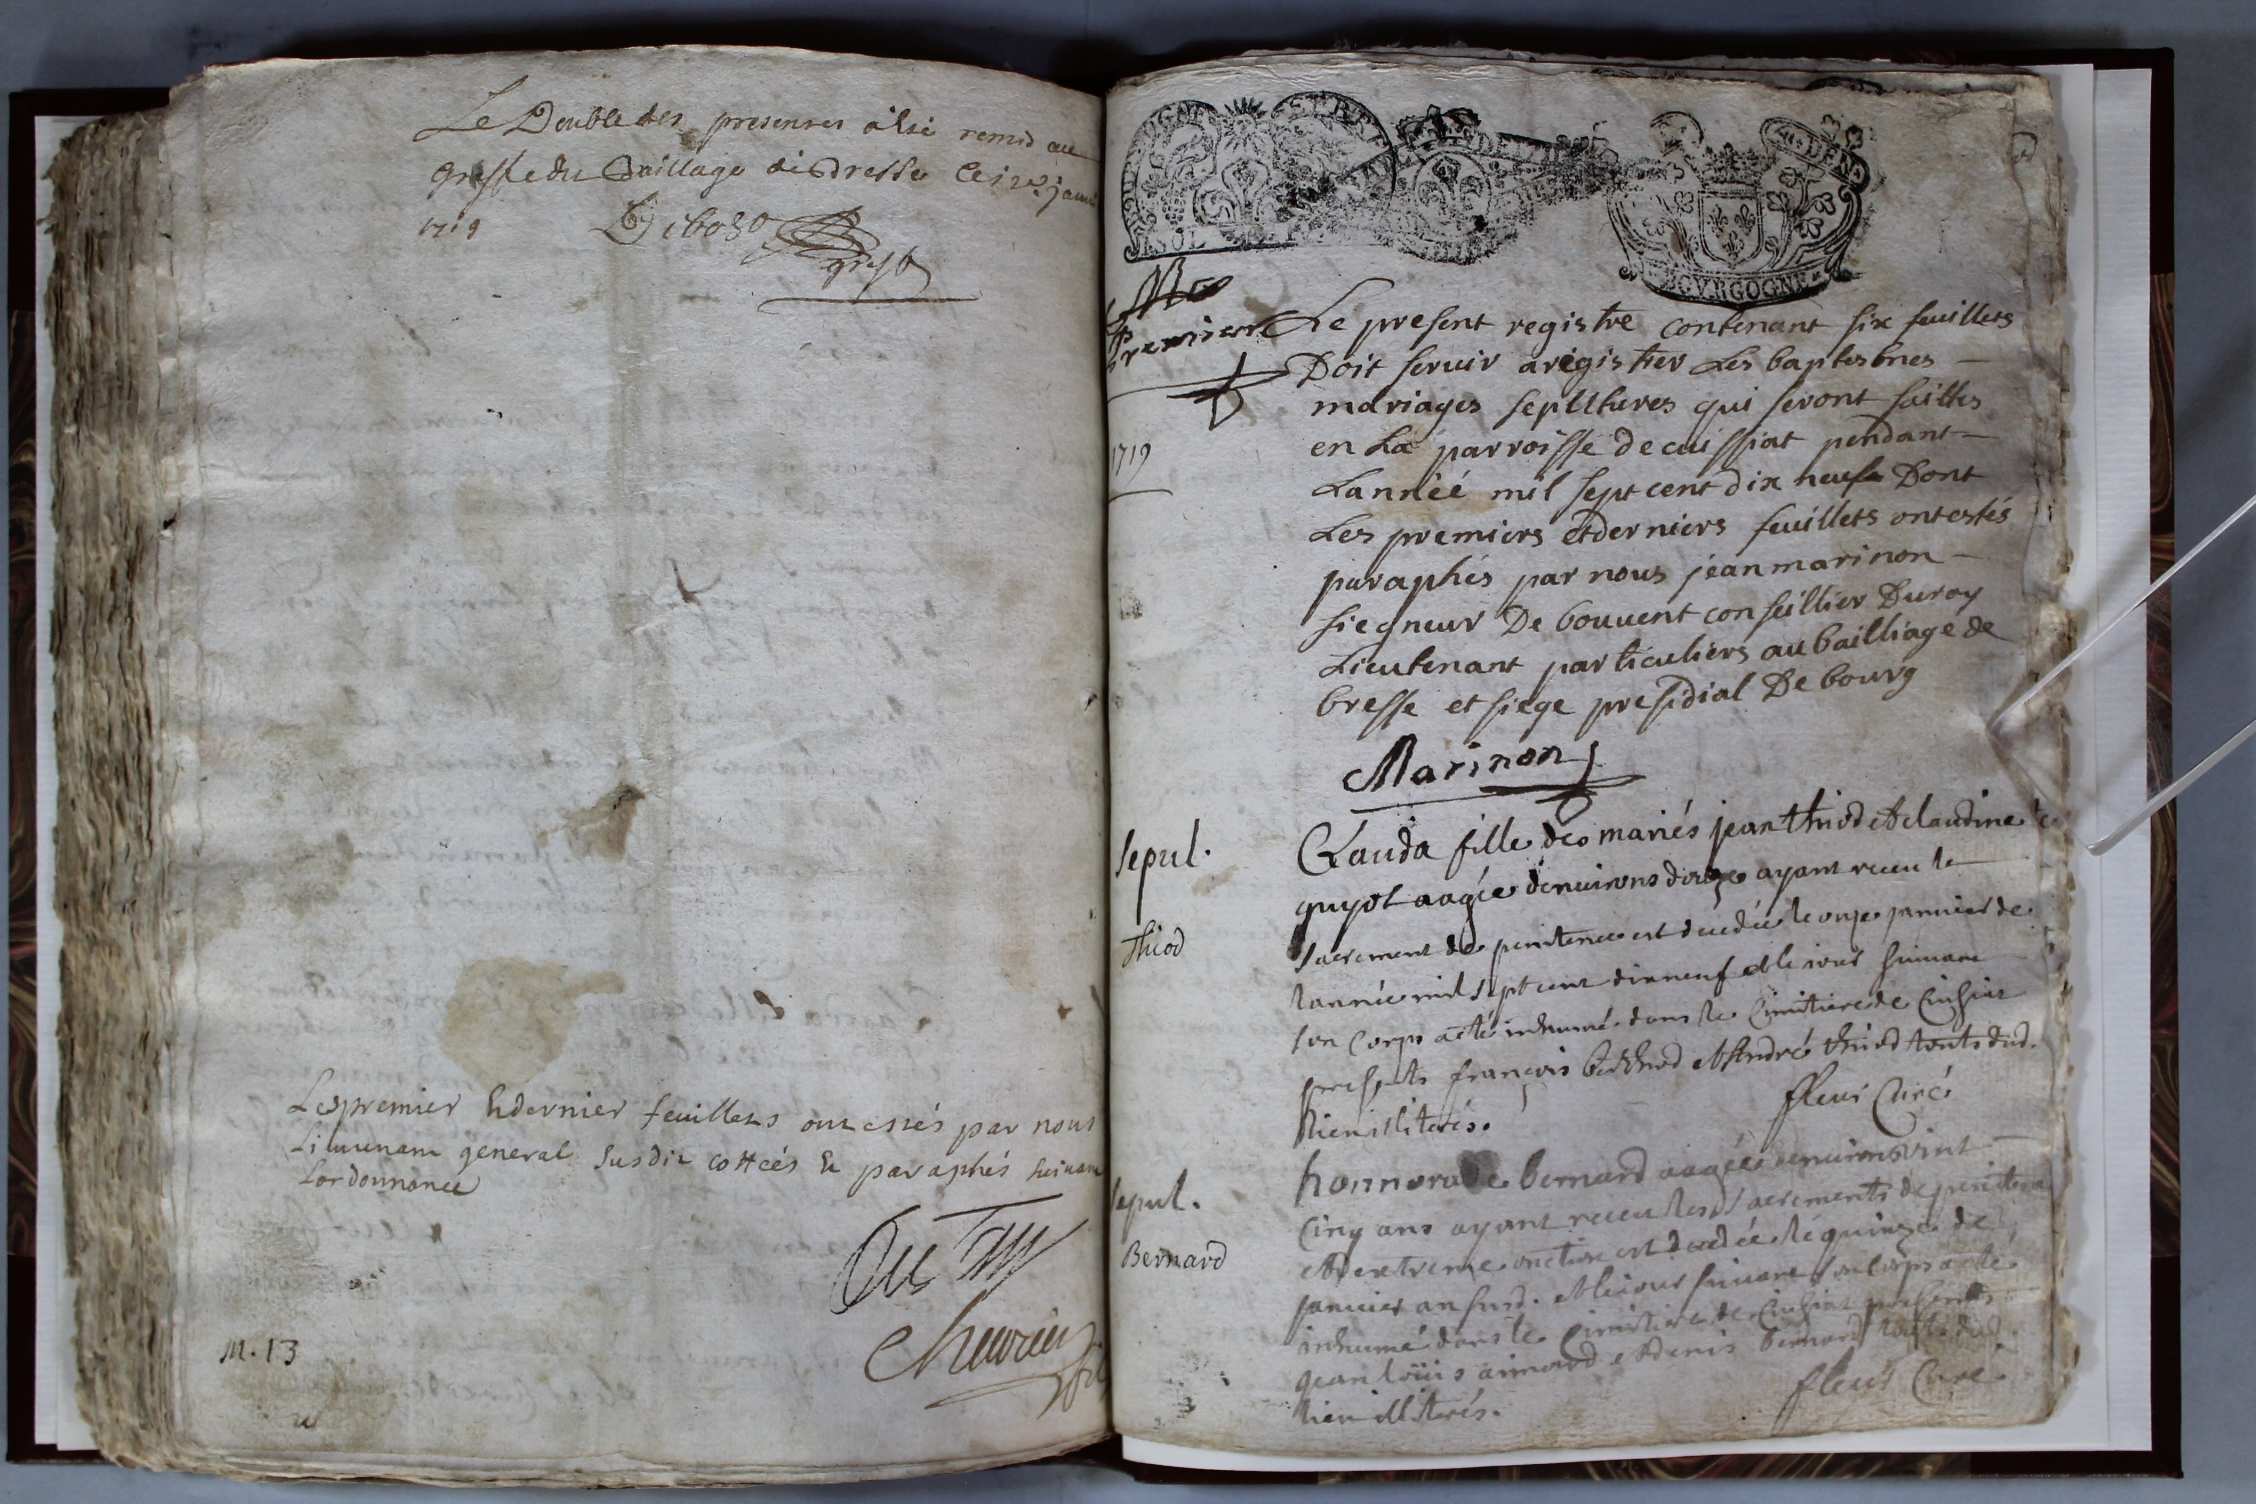 Le Double des presentes a esté remis au
greffe du Bailliage de Bresse Ce 12e janv
1719
greff
Les premier & dernier feuillets ont estés par nous
Lieutenant general susdit cottés & paraphés suivant
Lordonnance
M. 13
BOURGOGNE
Premier
Le present registre contenant six feuillets
Doit servir a registrer Les baptesmes
mariages sepultures qui seront faittes
1719
en La parroisse de cuissiat pendant
Lannéé mil sept cent dix neufs Dont
Les premiers et derniers feuillets ont estés
paraphés par nous jean marinon
siegneur De bouvent conseillier Du roy
Lieutenant particuliers au bailliage de
bresse et siege presidial De bourg
Marinon
sepul.
Clauda fille des mariés jean thiod et claudine
guyot aagée denvirons douze ayant receu le
Thiod
sacrement de penitence est decedée le onze janvier de
lannée mil sept cent dix neuf et le jour suivant
son corps a eté inhumé dans le Cimitiere de Cuisiat
presents françois berthod et André thiod touts dud.
lieu illiterés.
fleuri Curé
sepul.
honnorade bernard aagée denvirons vint
Cinq ans ayant receu les sacrements de penitence
Bernard
et dextreme onction est decedée le quinze de
janvier an susd. et le jour suivant son corps a eté
inhumé dans le Cimitiere de Cuisiat presents
jean loüis aimard et denis bernard touts dud.
lieu illiterés.
fleuri Curé